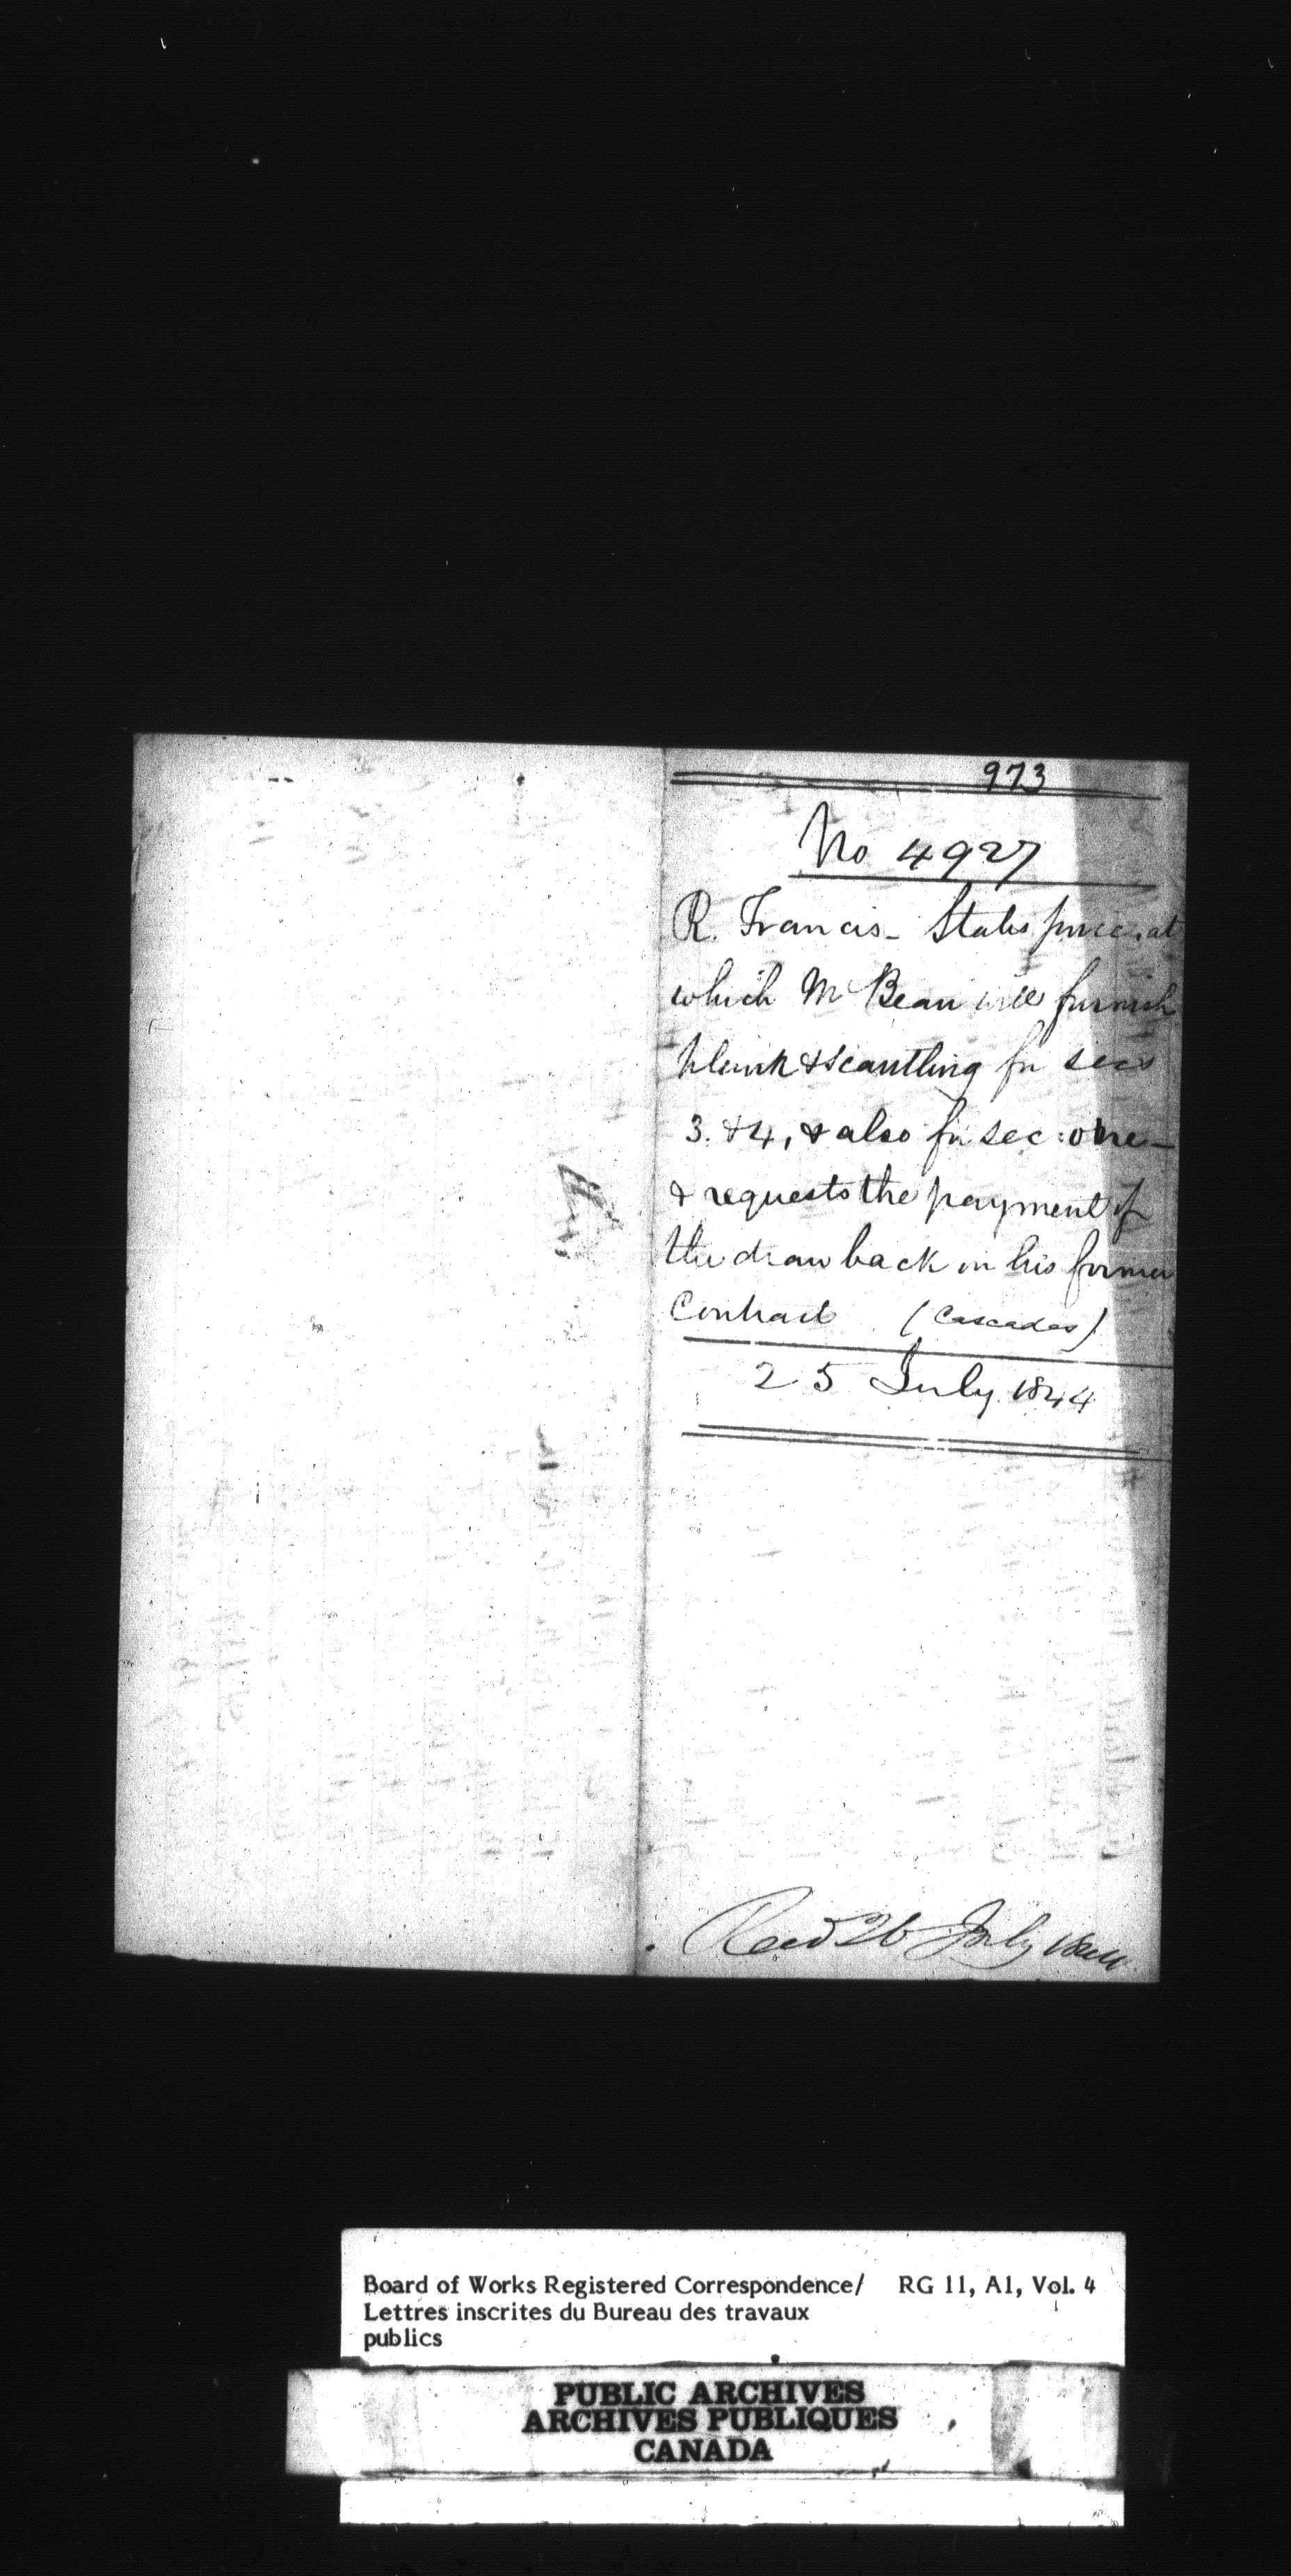 973
No 4927
R. Francis - States price at
which McBean will furnish
plank & scantling for secs
3. & 4, & also for sec: one -
& requests the payment of
the drawback on his former
Contract (Cascades)
25 July 1844
Recd 26 July 1844
Board of Works Registered Correspondence/ RG 11, A1, Vol. 4
Lettres inscrites du Bureau des travaux
publics
PUBLIC ARCHIVES
ARCHIVES PUBLIQUES
CANADA